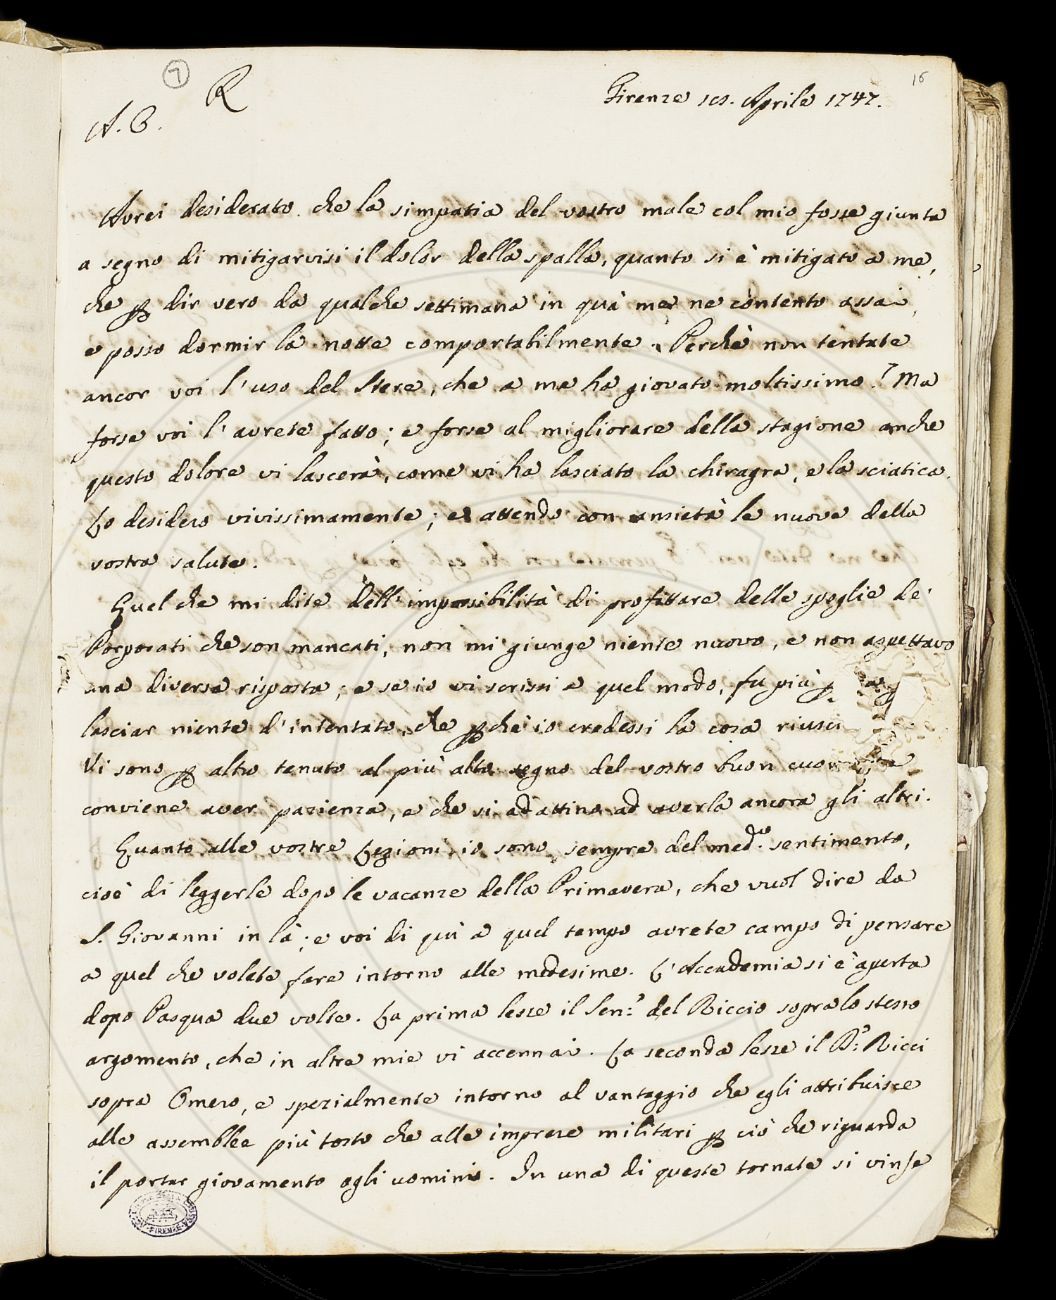 7 R
16
Firenze 1es. Aprile 1747.
A. C.
Avrei desiderato che la simpatia del vostro male col mio fosse giunta
a segno di mitigarvisi il dolor della spalla, quanto si è mitigato a me,
che ꝑ dir vero da qualche settimana in quà me ne contento assai,
e posso dormir la notte comportabilmente. Perchè non tentate
ancor voi l'uso del Itere, che a me ha giovato moltissimo? Ma
forse voi l'avrete fatto; e forse al migliorare della stagione anche
questo dolore vi lascerà, come vi ha lasciato la chiragra, e la sciatica.
Lo desidero vivissimamente; e attendo con ansietà le nuove della
vostra salute.
Quel che mi dite dell'impossibilità di profittare delle spoglie de'
Porporati che son mancati, non mi giunge niente nuovo, e non aspettavo
una diversa risposta; e se io vi scrissi a quel modo, fu più ꝑ
lasciar niente d'intentato, che ꝑchè io credessi la cosa riusci
Vi sono ꝑ altro tenuto al più alto segno del vostro buon cuore
conviene aver pazienza, e che si adattino ad averla ancora gli altri.
Quanto alle vostre Lezioni, io sono sempre del med.o sentimento,
cioè di leggerle dopo le vacanze della Primavera, che vuol dire da
S. Giovanni in là; e voi di quì a quel tempo avrete campo di pensare
a quel che volete fare intorno alle medesime. L'Accademia si è aperta
dopo Pasqua due volte. La prima lesse il Sen.e del Riccio sopra lo stesso
argomento, che in altre mie vi accennai. La seconda lesse il B.e Ricci
sopra Omero, e spezialmente intorno al vantaggio che egli attribuisce
alle assemblee più tosto che alle imprese militari ꝑ ciò che riguarda
il portar giovamento agli uomini. In una di queste tornate si vinse
FIRENZE